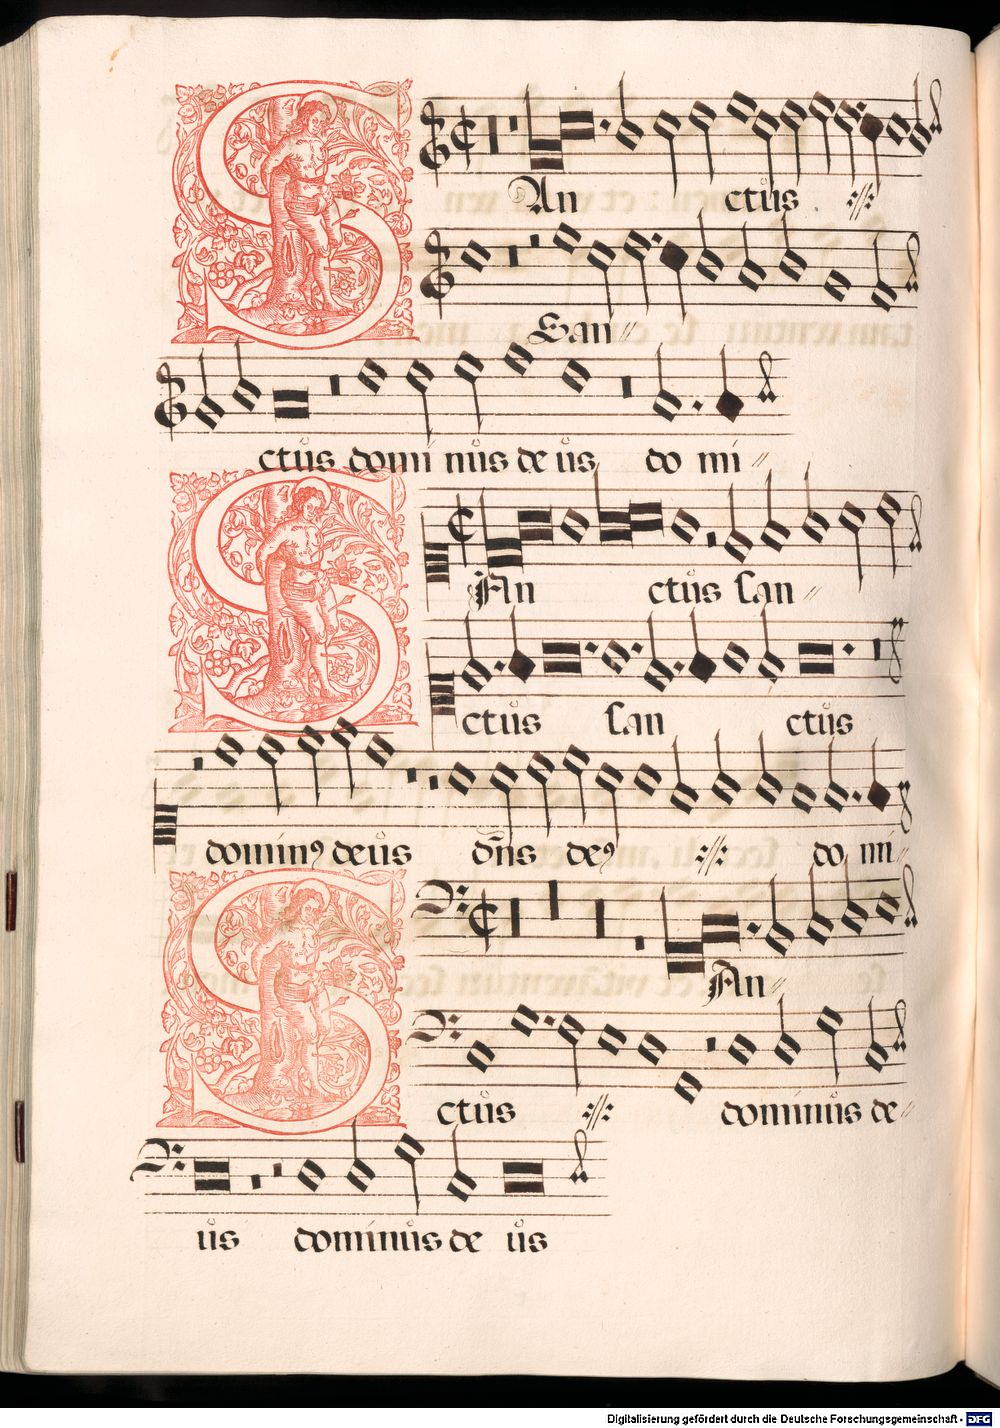 SAn ctus ://:
San//
ctus dominus deus domi//
SAn ctus san//
ctus san ctus
dominꝰ deus dn̄s deꝰ ://: domi//
SAn//
ctus ://: dominus de//
us dominus deus
Digitalisierung gefördert durch die Deutsche Forschungsgemeinschaft - DFG